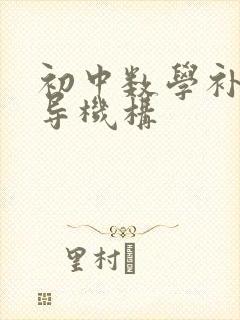 初中数學补
导機構
里村